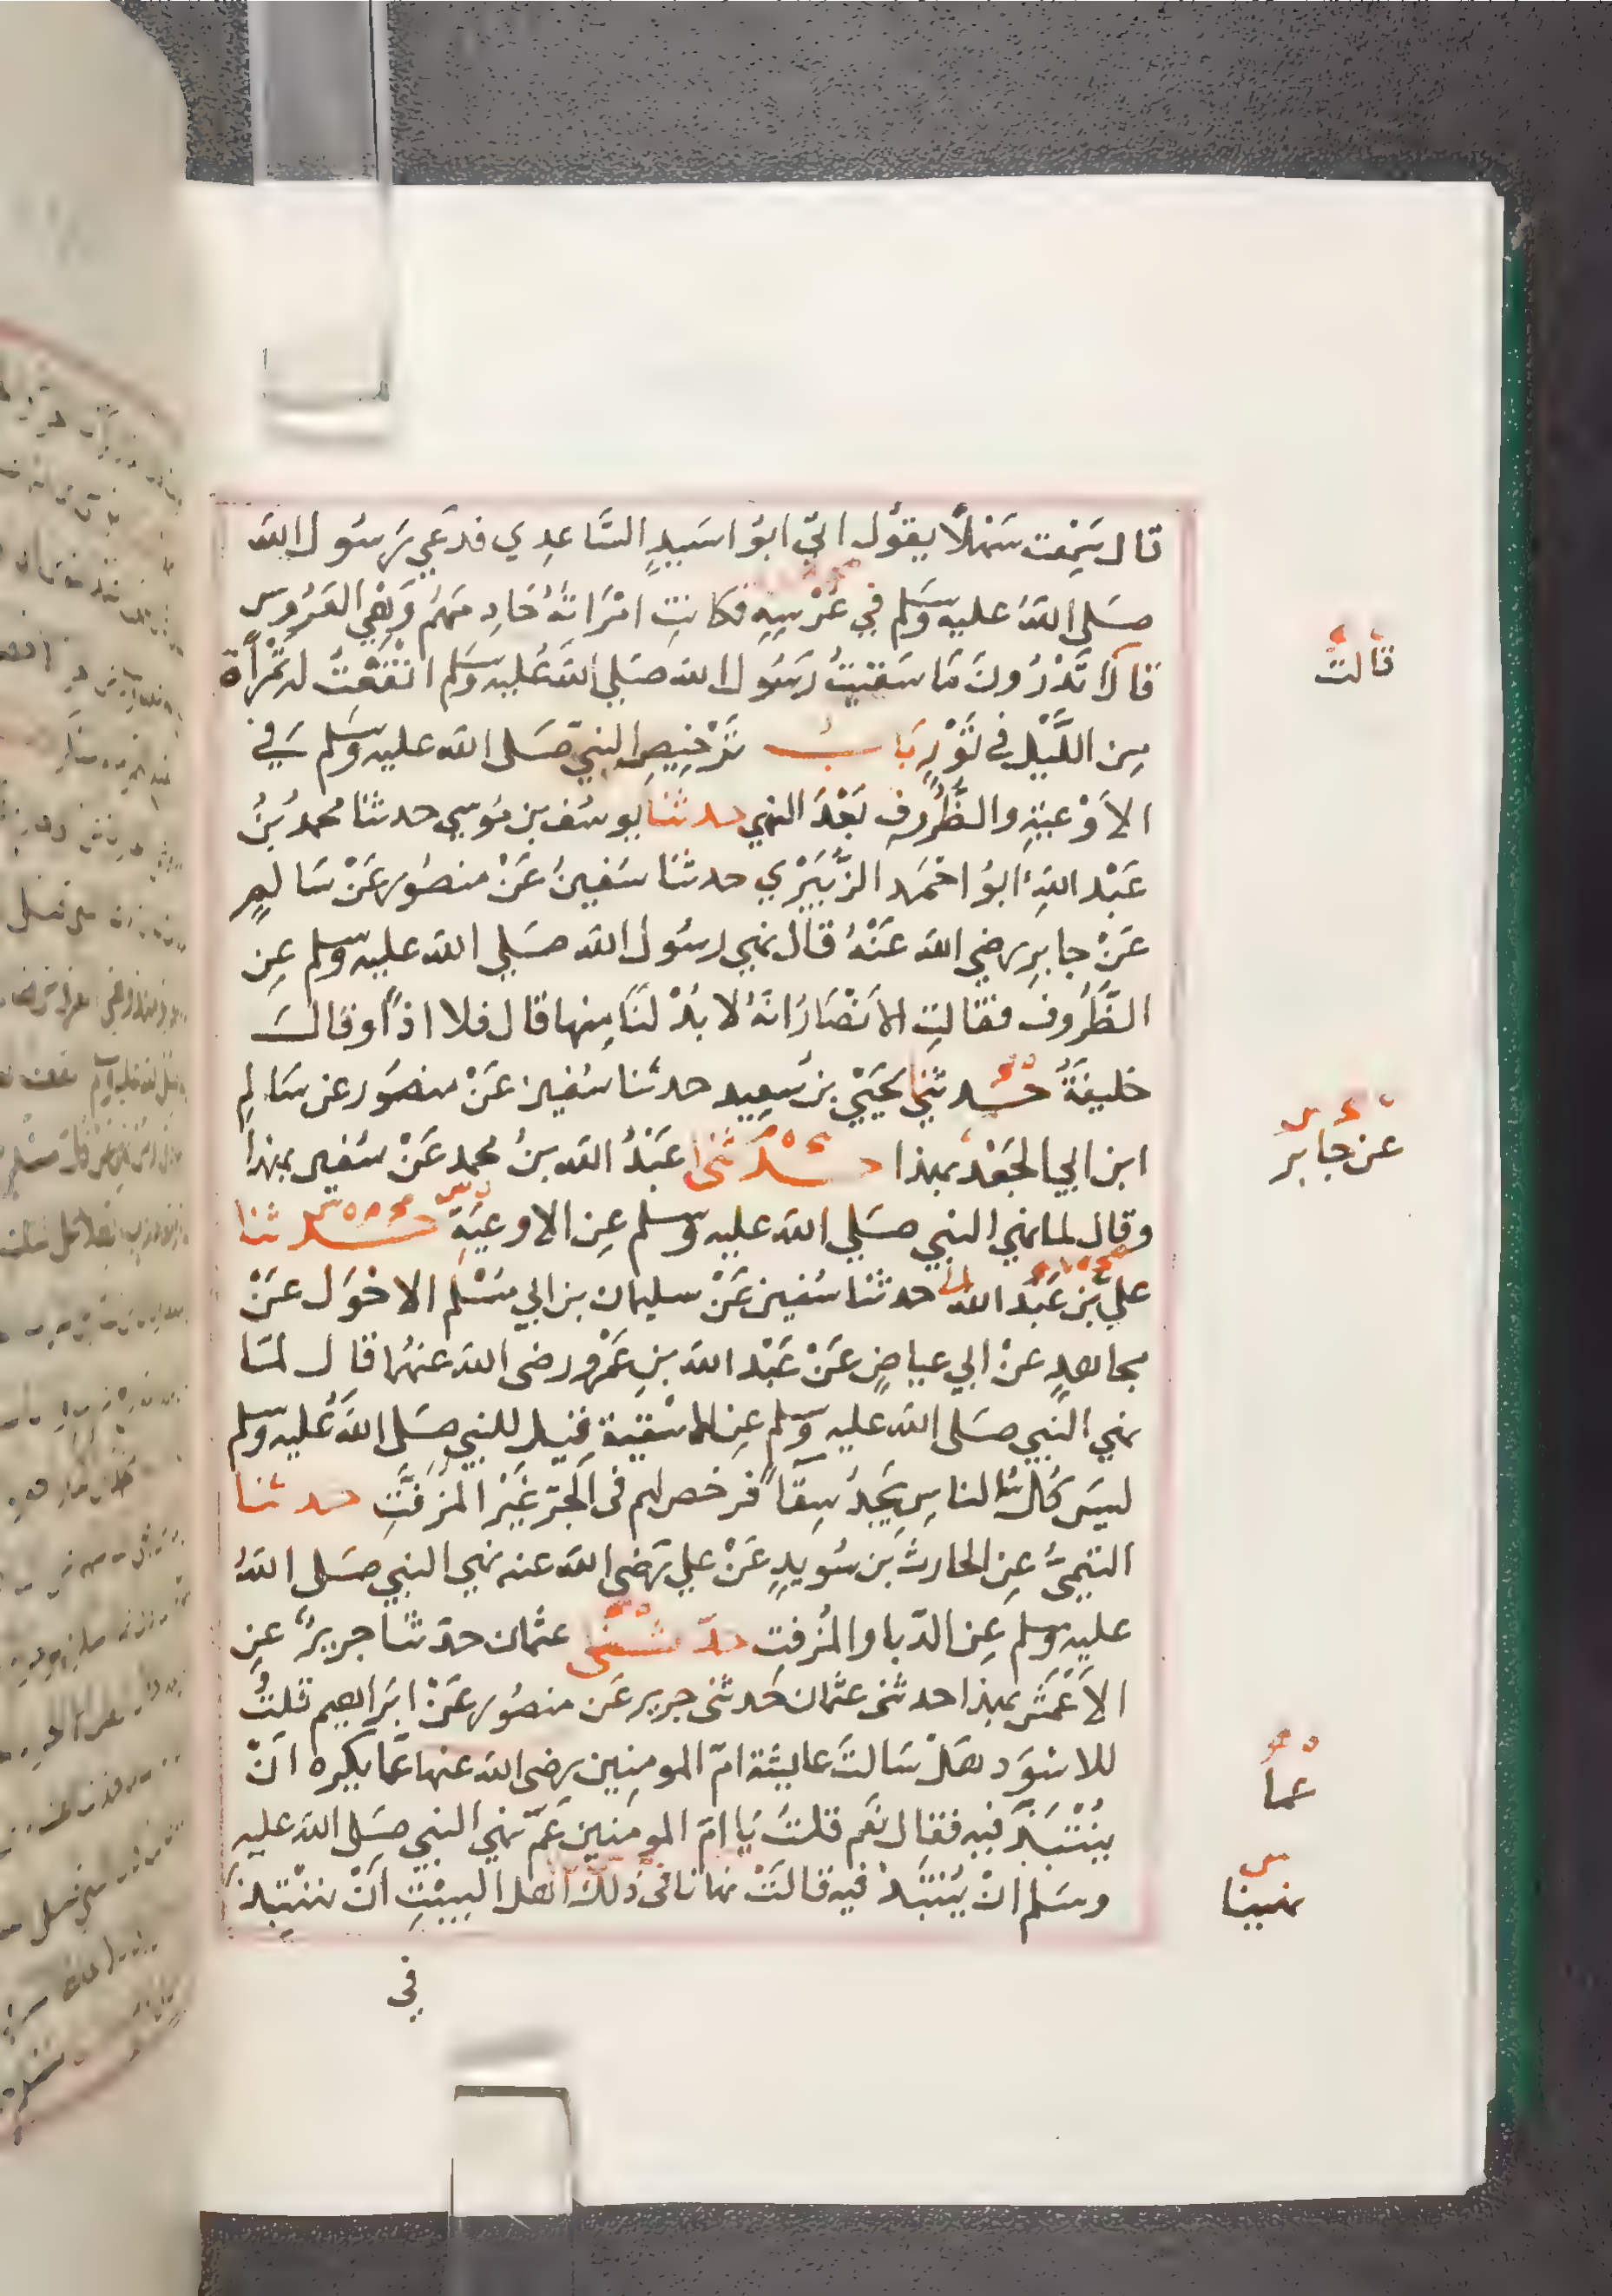 قال سَمِعت سَهْلًا يقوُل اتيَ ابوُ اسَيدٍ السَّاعدِي فدَعَي رَسُول الله
صَلى اللهُ عليه وَسَلم في عُرْسِهِ فكانتِ امْرَاتهُ خَادِمَهُم وَهْيَ العَرُوس
قالَ اتَدْرُونَ مَا سَقيتُ رَسُول الله صَلي الله عَليه وَسَلم انْقعْتُ له تمْراةً
مِن اللَّيْل في تَوْرٍ بَابُ تَرْخِيصِ النبيّ صَلى الله عليه وَسَلم في
الاَوْعيَةِ والظُّرُوفِ بَعْدَ النهي حدثنا يوسُف بن مُوسي حدثنا محمد بنُ
عَبْد اللهِ ابوُ احْمَد الزُّبَيْرْي حدثنَا سَفينُ عَنْ منصُور عَنْ سَالمٍ
عَنْ جابرٍ رضي الله عَنْهُ قال نهي رسُول الله صَلي الله عليه وسلم عِن
الظُّرُوف فقالتِ الانْصَارُ انهُ لا بُدْ لنَا منها قال فلا اذًا وقالَ
خليفَةُ حدثني يحَيَيْ بن سَعِيد حدثنا سُفين عَنْ منصُور عن سَالمِ
ابن ابي الجَعْد بهذا حدثنى عَبْدُ الله بنُ محمد عَنْ سُفين بهذا
وقال لما نهي النبي صَلي الله عليه وَسلم عِن الاوعيَةِ حدثنا
علي بن عَبْد الله حدثنا سُفين عَنْ سليمان بن ابي مسْلم الاحْوَل عَنْ
مجاهدٍ عنْ ابي عياضٍ عَنْ عَبْد الله بنِ عَمْرو رضى الله عنهُما قال لمَّا
نهي النبي صَلى الله عليه وَسلم عِن الاسْقية قيل للنبي صَلى اللهُ عَليه وسلم
ليسَ كُلُ الناسِ يَجدُ سِقاً فرخص لهم فى الجَرّ غَيْر المُزَفَّتِ حدثنا
التيْميُّ عِن الحارث بن سُويدٍ عَنْ علي رَضى الله عنه نهي النبي صَلى اللهُ
عليه وَسلم عِن الدّبا والمُزفتِ حدّثنى عثمان حدّثنا جريرٌ عِن
الاَعْمَش بهذا حدثنى عثمان حَدثنى جرير عَن منصُور عَنْ ابرَاهيم قلتُ
للاسْوَد هَلْ سَالتَ عايشَة امّ المومنِين رضى الله عنها عَمّا يكره انْ
يُنْتَبَذَ فيه فقال نعَم قلتُ يَا امّ المومنين عَمّ نهي النبي صَلى الله عليه
وسَلم انْ يُنتبَذ فيه قالتْ نهانا فى ذلك اهلَ البيْتِ انْ ننْتبذ
في
قالتْ
عن جابر
عما
نهينا